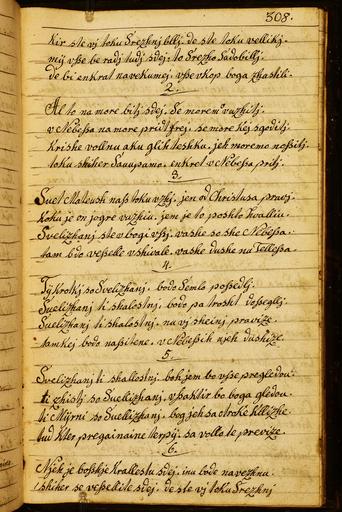 308.
Kir ste vj toku Srezhnj billj, de ste toku vellikj
mej vsse be radj tudj sdej, to Srezho Sadobillj
de bi enkrat navekumej, vsse vkop boga zhastili.
2.
Al to na more bitj sdej, Se morem vuzhitj.
v Nebessa na more pridt frej, se more kej sgoditj
Krishe vollnu aku glih teshku, jeh moremo nossitj
toku shiher Saupamo, enkrat v Nebessa pritj.
3.
Suet Mateush nass toku vzhj, jen od Christusa pravj,
Koku je on jogre vuzhiu, jem je to poshto hvalliu
Svelizhanj ste v bogi vssj, vashe so she Nebessa.
tam bdo vesselle vshivale, vashe dushe na Tellessa
4.
Tj krotkj so Svelizhanj, bodo Semlo possedlj.
Suelizhanj ti shalostnj, bodo pa trosht dossegllj.
Suelizhanj ti shalostnj, na vj sheinj pravize.
tam kej bodo nassitene, v Nebessih njeh dushize.
5.
Svelizhanj ti shallostnj boh jem bo vsse pregledou.
ti zhistj so Suellizhanj, vssaktir bo boga gledou.
ti Mijrni so Suellizhanj, bog jeh sa otroke kllizhe
tud kter pregainaine terpij, sa vollo te previze.
6.
Njeh je boshje Krallestu sdej, inu bode navezhnu
shiher se vessellite sdej, de ste vj toku Srezhnj